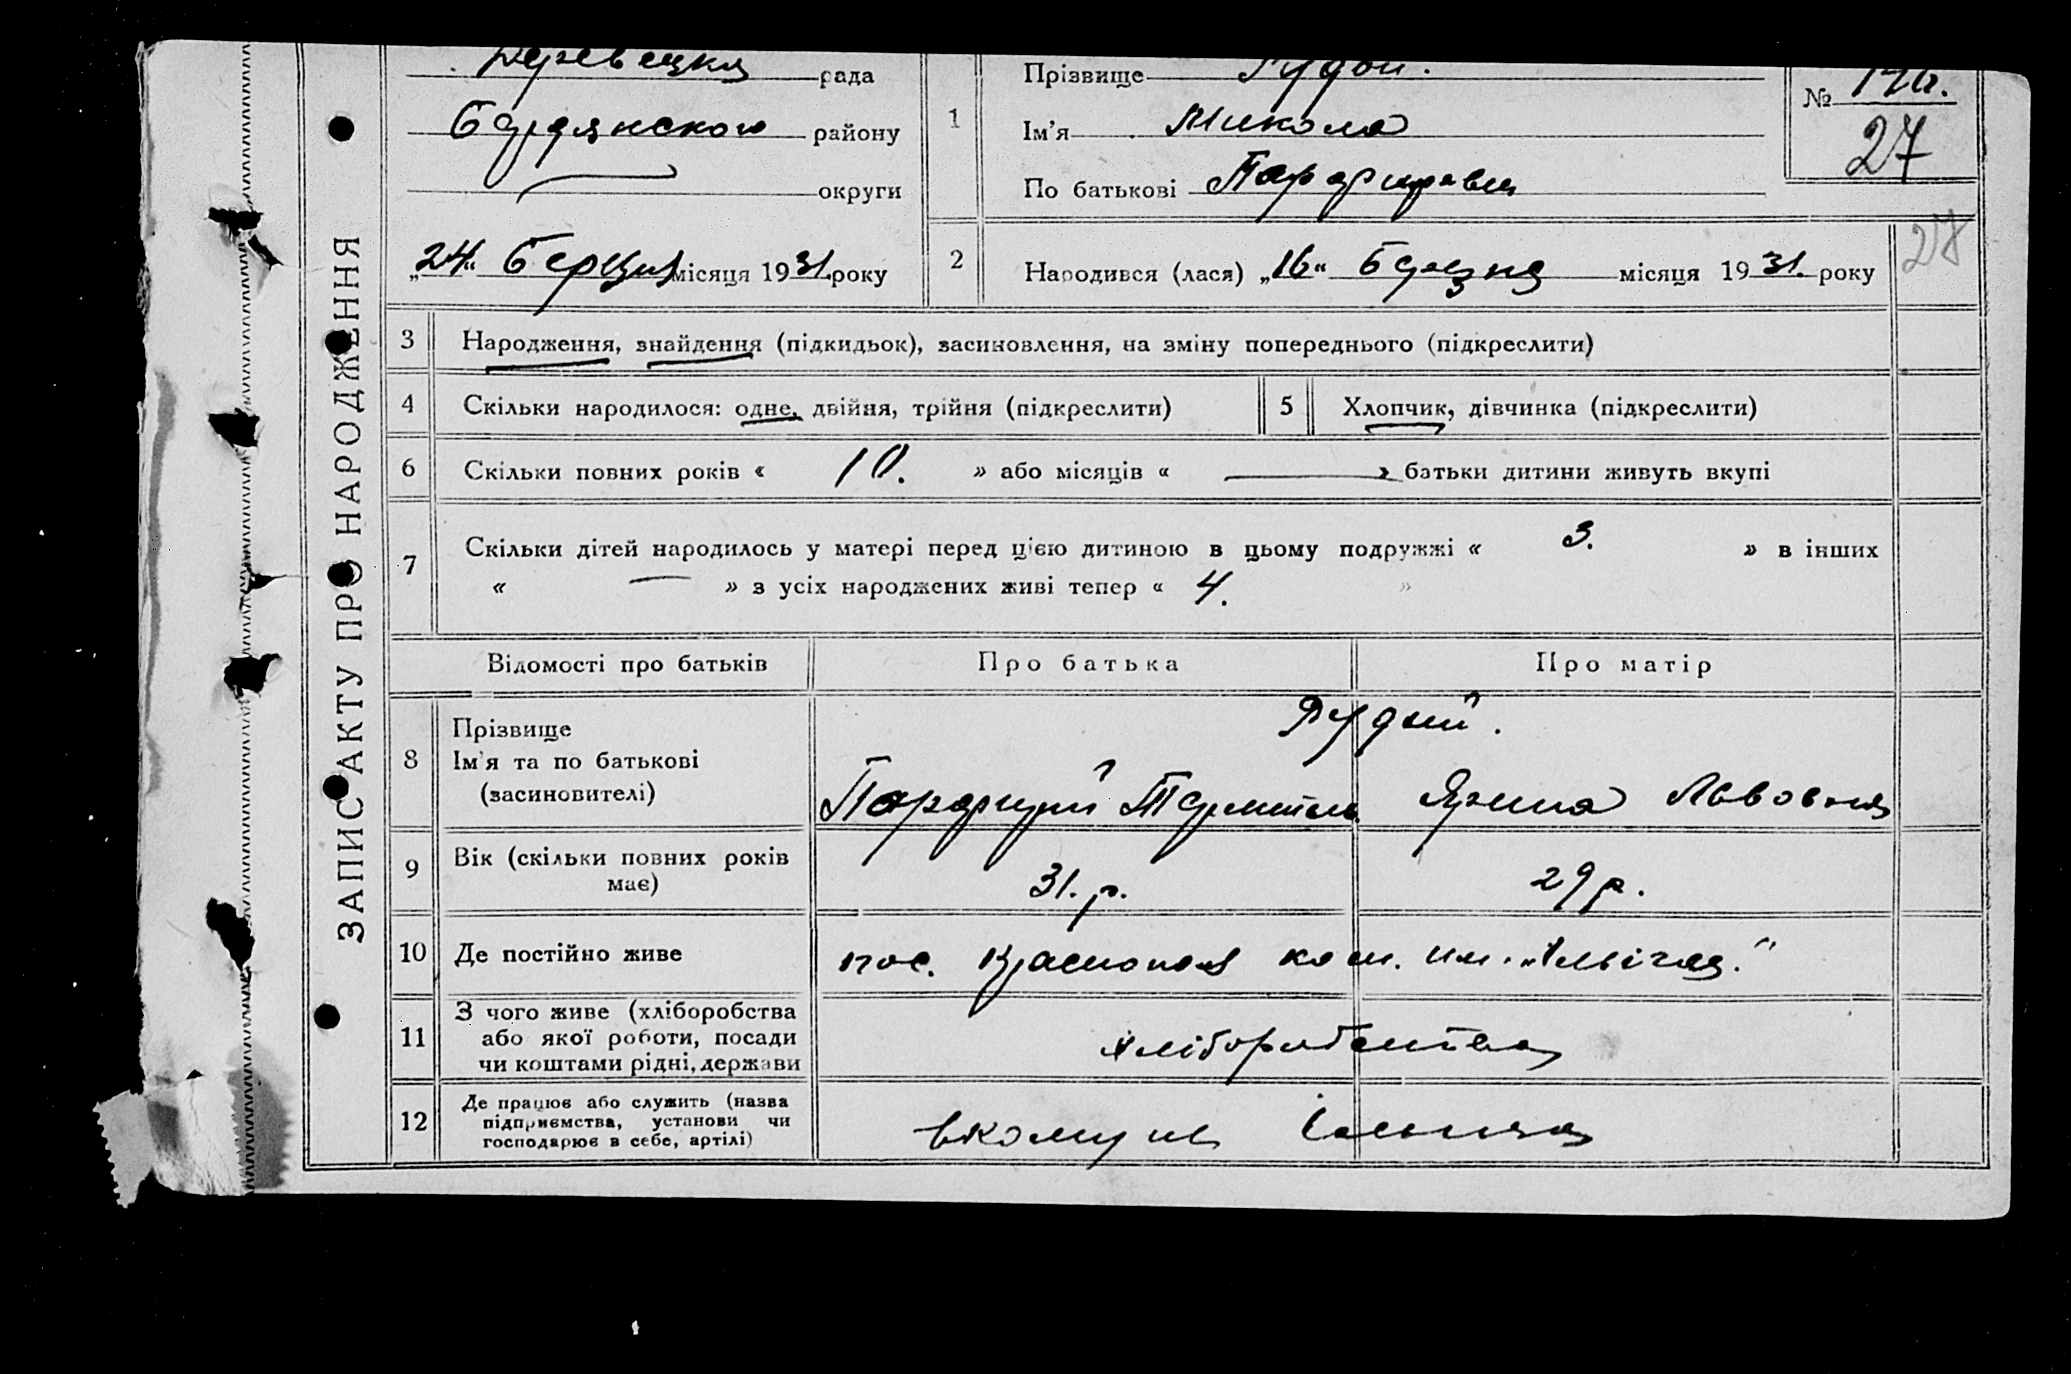 рада
Бердянського району
округи
„24“ березня місяця 1931 року
1
Прізвище Рудой.
Ім’я Микола
По батькові Парфирович
№ 27
2
Народився (лася) „16“ березня місяця 1931. року
28
ЗАПИС АКТУ ПРО НАРОДЖЕННЯ
3 Народження, знайдення (підкидьок), засиновлення, на зміну попереднього (підкреслити)
4 Скільки народилося: одне, двійня, трійня (підкреслити) 5 Хлопчик, дівчинка (підкреслити)
6 Скільки повних років « 10. » або місяців « — » батьки дитини живуть вкупі
7 Скільки дітей народилось у матері перед цією дитиною в цьому подружжі « 3. » в інших
« — » з усіх народжених живі тепер « 4. »
Відомості про батьків Про батька Про матір
8 Прізвище
Ім’я та по батькові
(засиновителі)
Рудий.
Парфирий Ярина Львовна
9 Вік (скільки повних років
має)
31. р. 29 р.
10 Де постійно живе пос. Краснополя ком. им.
11 З чого живе (хліборобства
або якої роботи, посади
чи коштами рідні, держави
хліборобства
12 Де працює або служить (назва
підприємства, установи чи
господарює в себе, артілі)
в комуні